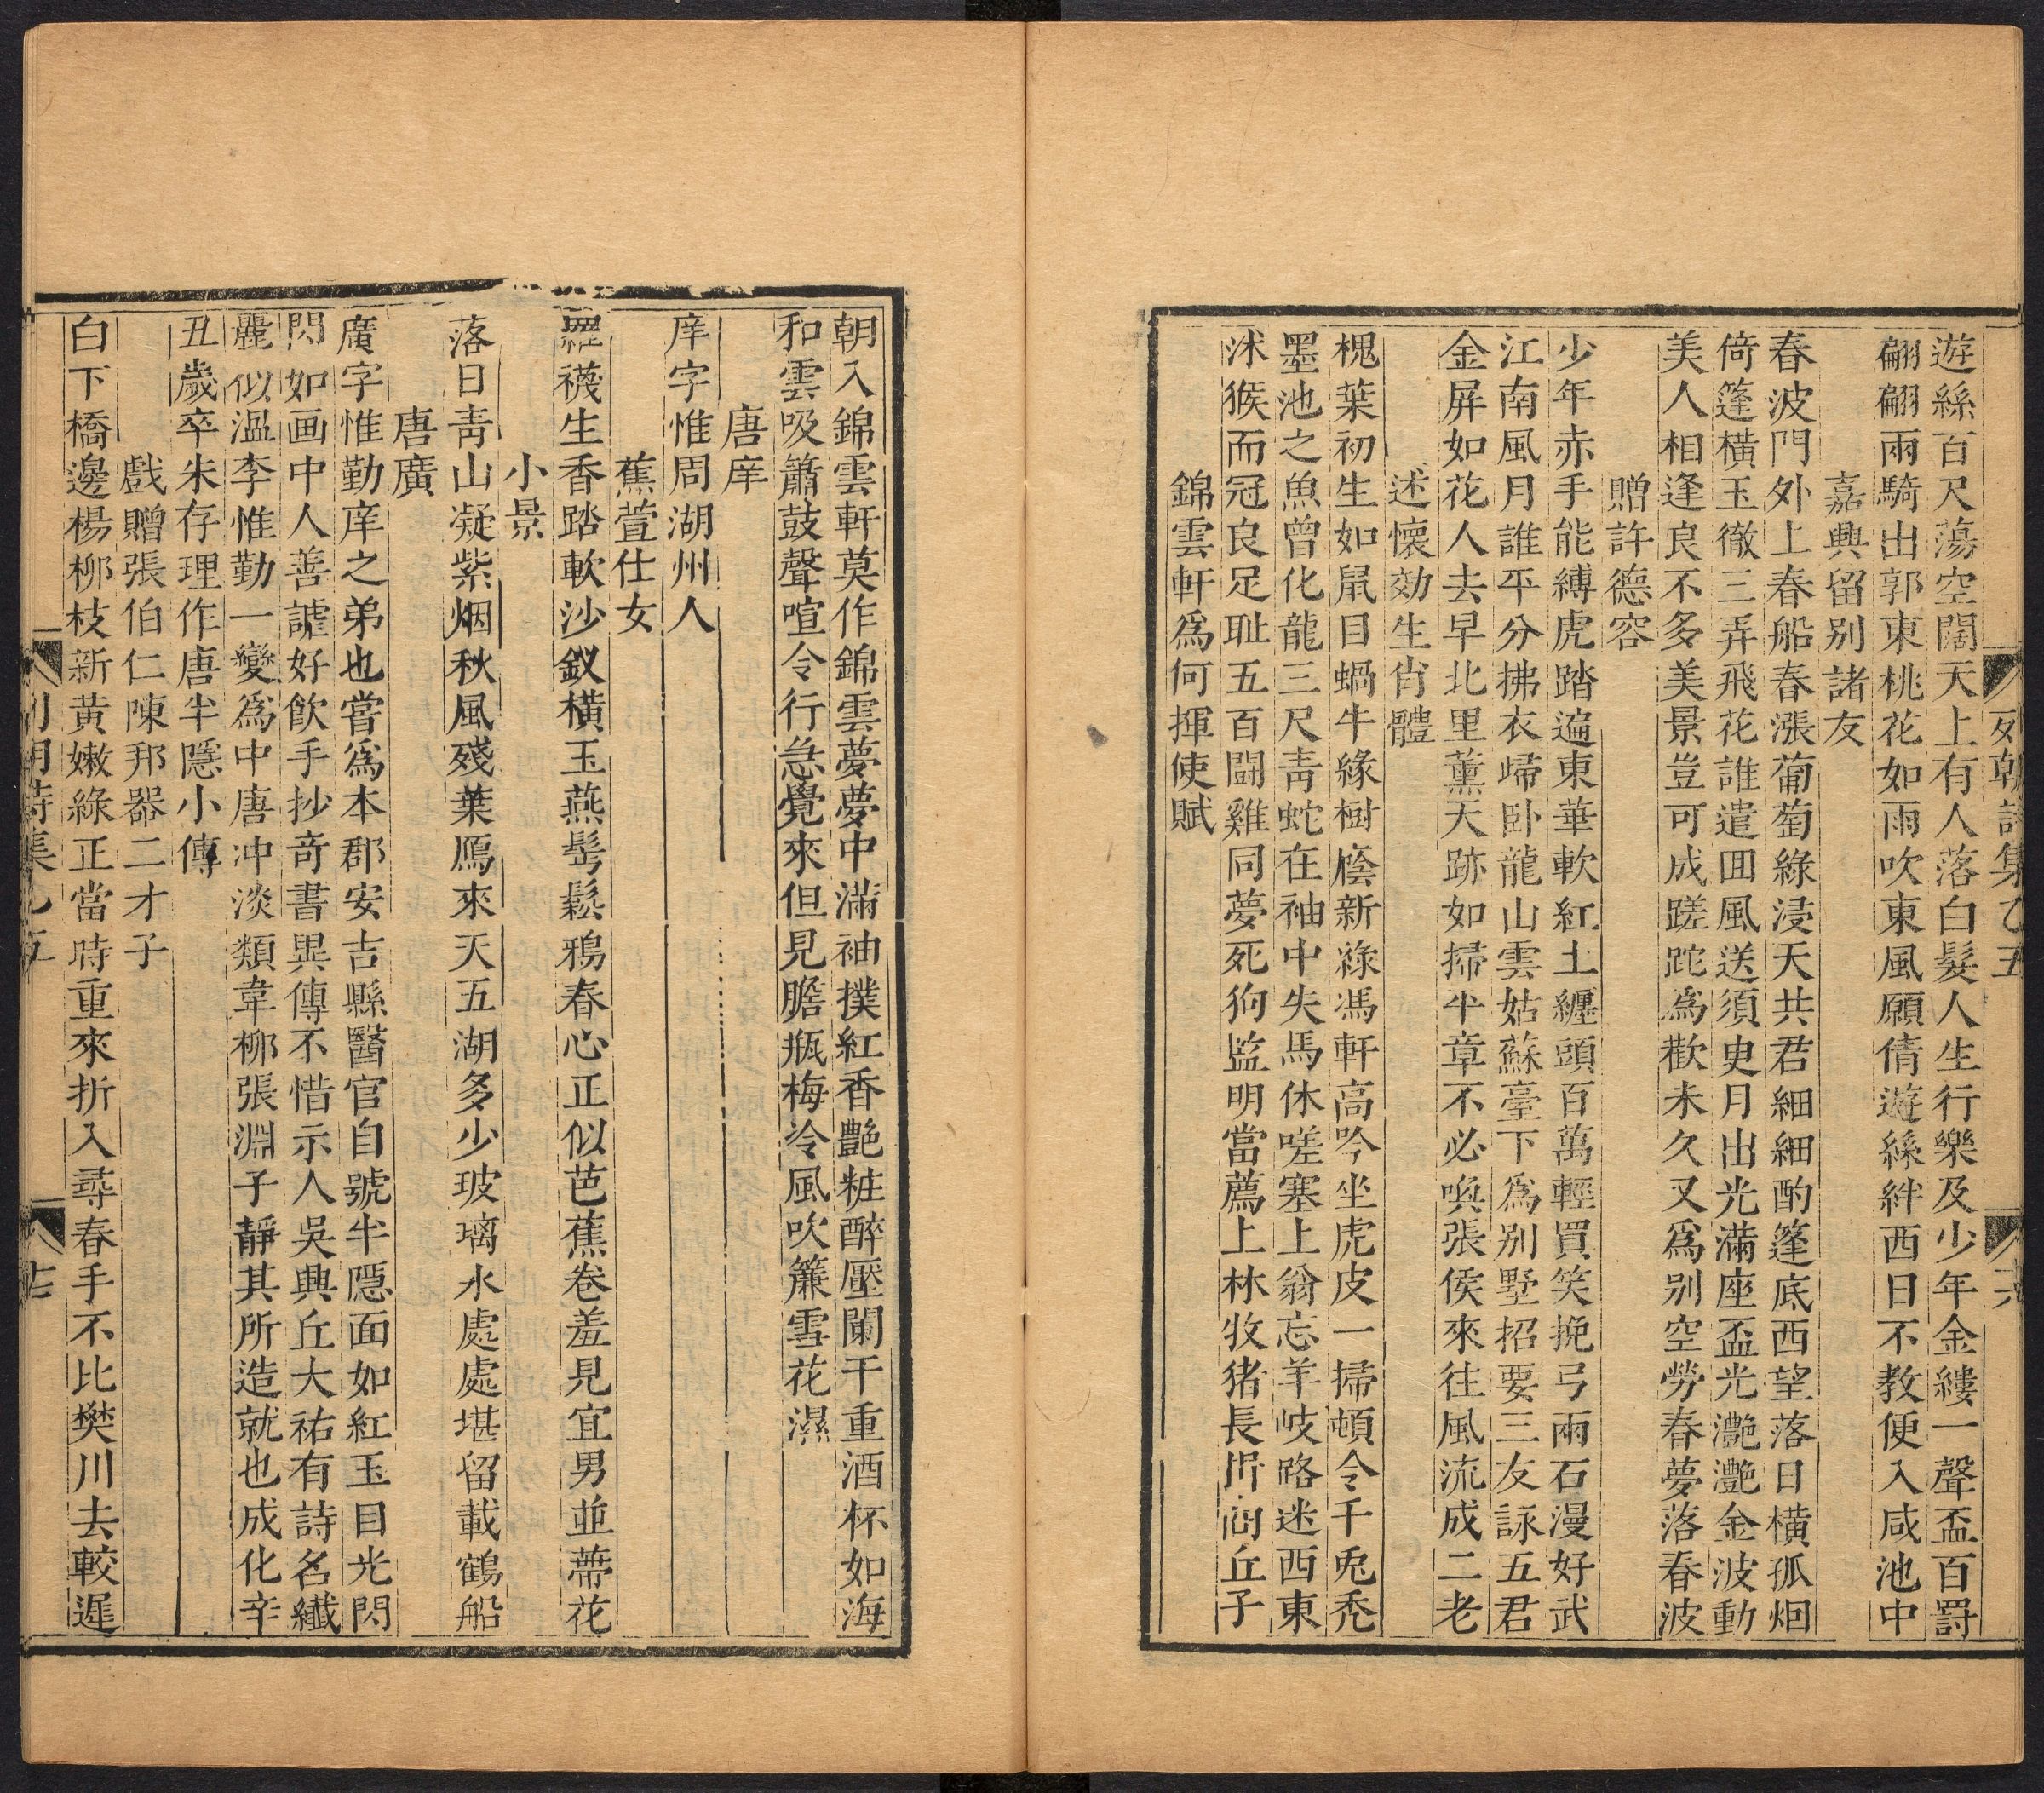 列朝詩集乙五
十六
遊絲百尺蕩空闊天上有人落白髮人生行樂及少年金縷一聲盃百罸
翩翩兩騎出郭東桃花如雨吹東風願倩遊絲絆西日不教便入咸池中
嘉興留別諸友
春波門外上春船春漲葡萄綠浸天共君細細酌篷底西望落日橫孤烟
倚篷橫玉徹三弄飛花誰遣囬風送須臾月出光滿座盃光灔灔金波動
美人相逢良不多美景豈可成蹉跎爲歡未久又爲別空勞春夢落春波
贈許德容
少年赤手能縛虎踏遍東華軟紅土纒頭百萬輕買笑挽弓兩石漫好武
江南風月誰平分拂衣歸卧龍山雲姑蘇臺下爲别墅招要三友詠五君
金屏如花人去早北里薰天跡如掃半章不必喚張侯來往風流成二老
述懷効生肖體
槐葉初生如鼠目蝸牛緣樹隂新綠馮軒高吟坐虎皮一掃頓令千兎禿
墨池之魚曾化龍三尺青蛇在袖中失馬休嗟塞上翁忘羊岐路迷西東
沐猴而冠良足耻五百闘雞同夢死狗監明當薦上林牧猪長所商丘子
錦雲軒爲何揮使賦
朝入錦雲軒莫作錦雲夢夢中滿袖撲紅香艷粧醉壓闌干重酒杯如海
和雲吸簫鼓聲喧令行急覺來但見膽瓶梅冷風吹簾雪花濕
唐庠
庠字惟周湖州人
蕉萱仕女
羅襪生香踏軟沙釵橫玉燕髩鬆鴉春心正似芭蕉卷羞見宜男並蔕花
小景
落日青山凝紫烟秋風殘葉鴈來天五湖多少玻璃水處處堪留載鶴船
唐廣
廣字惟勤庠之弟也嘗爲本郡安吉縣醫官自號半隱面如紅玉目光閃
閃如画中人善謔好飮手抄奇書異傳不惜示人吳興丘大祐有詩名纎
麗似溫李惟勤一變爲中唐冲淡類韋柳張淵子靜其所造就也成化辛
丑歲卒朱存理作唐半隱小傳
戲贈張伯仁陳邦器二才子
白下橋邊楊柳枝新黃嫩綠正當時重來折入尋春手不比樊川去較遲
列朝詩集乙五
十七